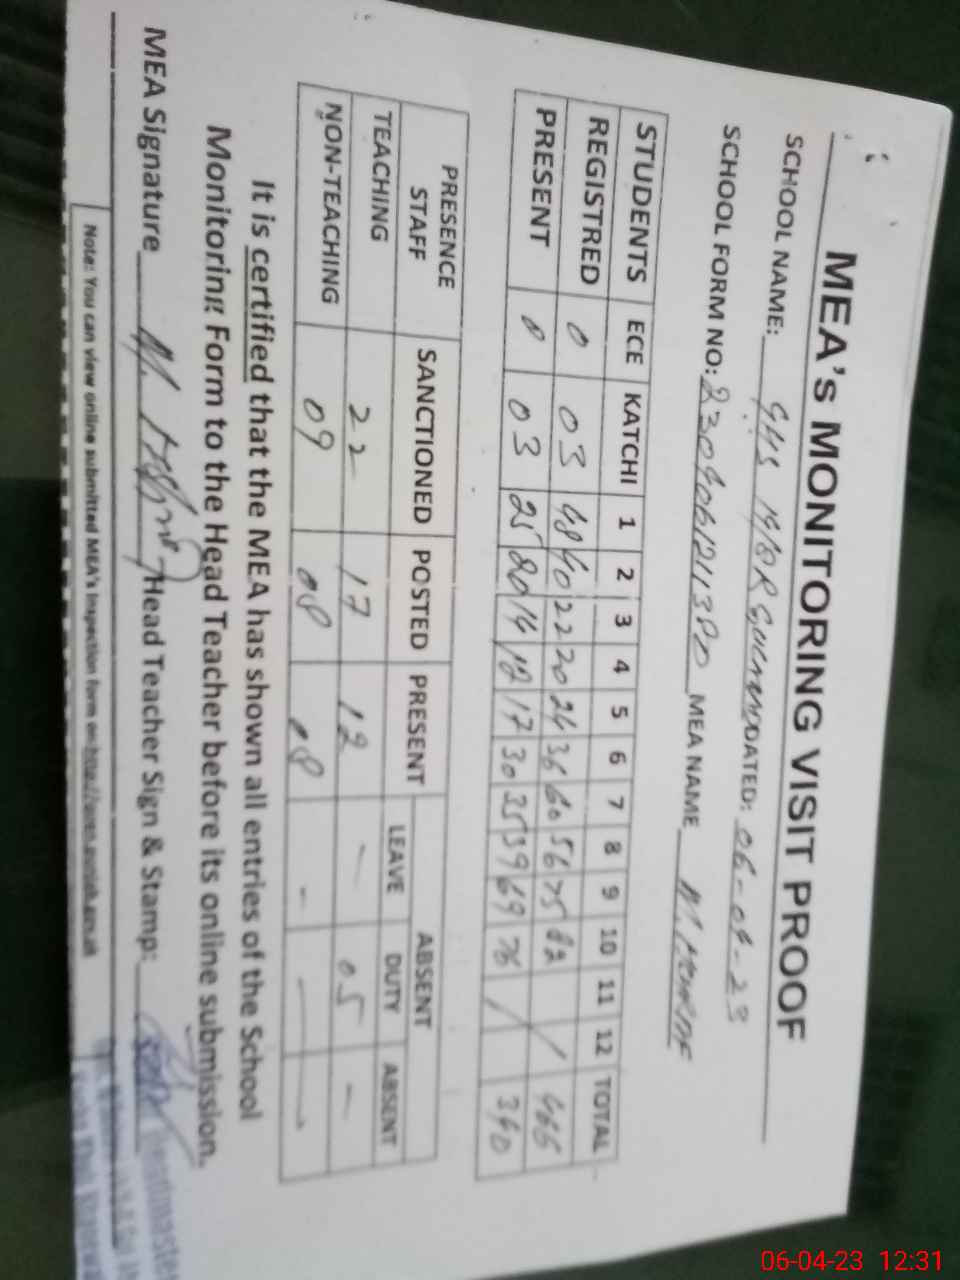 MEA's MONITORING VISIT PROOF
SCHOOL NAME: GHS 19/8R DATED: 06-04-23
SCHOOL FORM NO: MEA NAME
STUDENTS ECE KATCHI 1 2 3 4 5 6 7 8 9 10 11 12 TOTAL
REGISTRED 0 03 48 40 22 20 24 36 60 56 75 82 / 466
PRESENT 0 03 25 20 14 12 17 30 35 39 69 76 / 340
PRESENCE STAFF SANCTIONED POSTED PRESENT ABSENT
LEAVE DUTY ABSENT
TEACHING 22 17 12 - 05 -
NON-TEACHING 09 08 08 - - -
It is certified that the MEA has shown all entries of the School
Monitoring Form to the Head Teacher before its online submission.
MEA Signature Head Teacher Sign & Stamp:
Note: You can view online submitted MEA's inspection form on
Headmaster
06-04-23 12:31